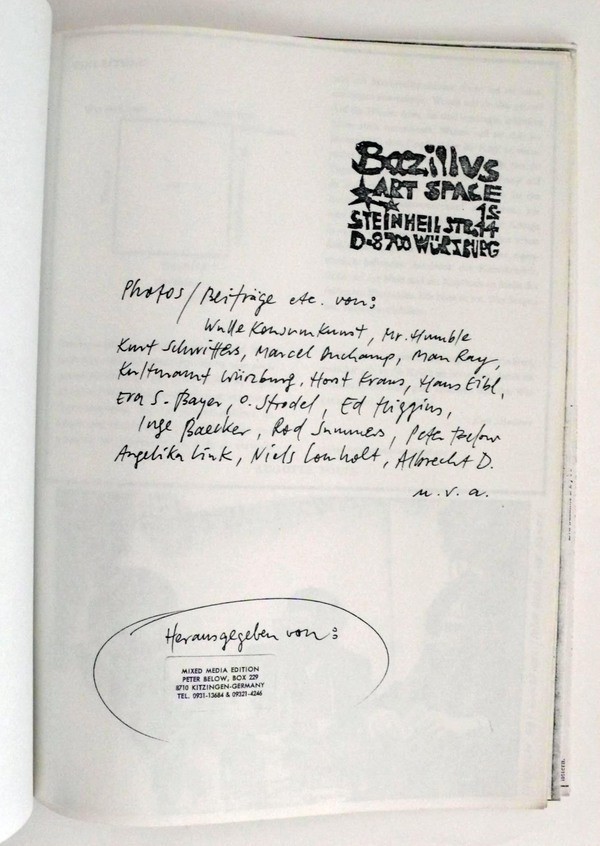 Bazillus
ART SPACE
STEINHEILSTR. 14
D-8700 WÜRZBURG
Photos/Beiträge etc. von:
Wulle Konsumkunst, Mr. Humble
Kurt Schwitters, Marcel Duchamp, Man Ray,
Kulturamt Würzburg, Horst Kraus, Hans Eibl,
Eva S. Bayer, O. Strodel, Ed Higgins,
Inge Baecker, Rod Summers, Peter Below
Angelika Link, Niels Lomholt, Albrecht D.
u. v. a.
Herausgegeben von:
MIXED MEDIA EDITION
PETER BELOW, BOX 229
8710 KITZINGEN-GERMANY
TEL. 0931-13684 & 09321-4246